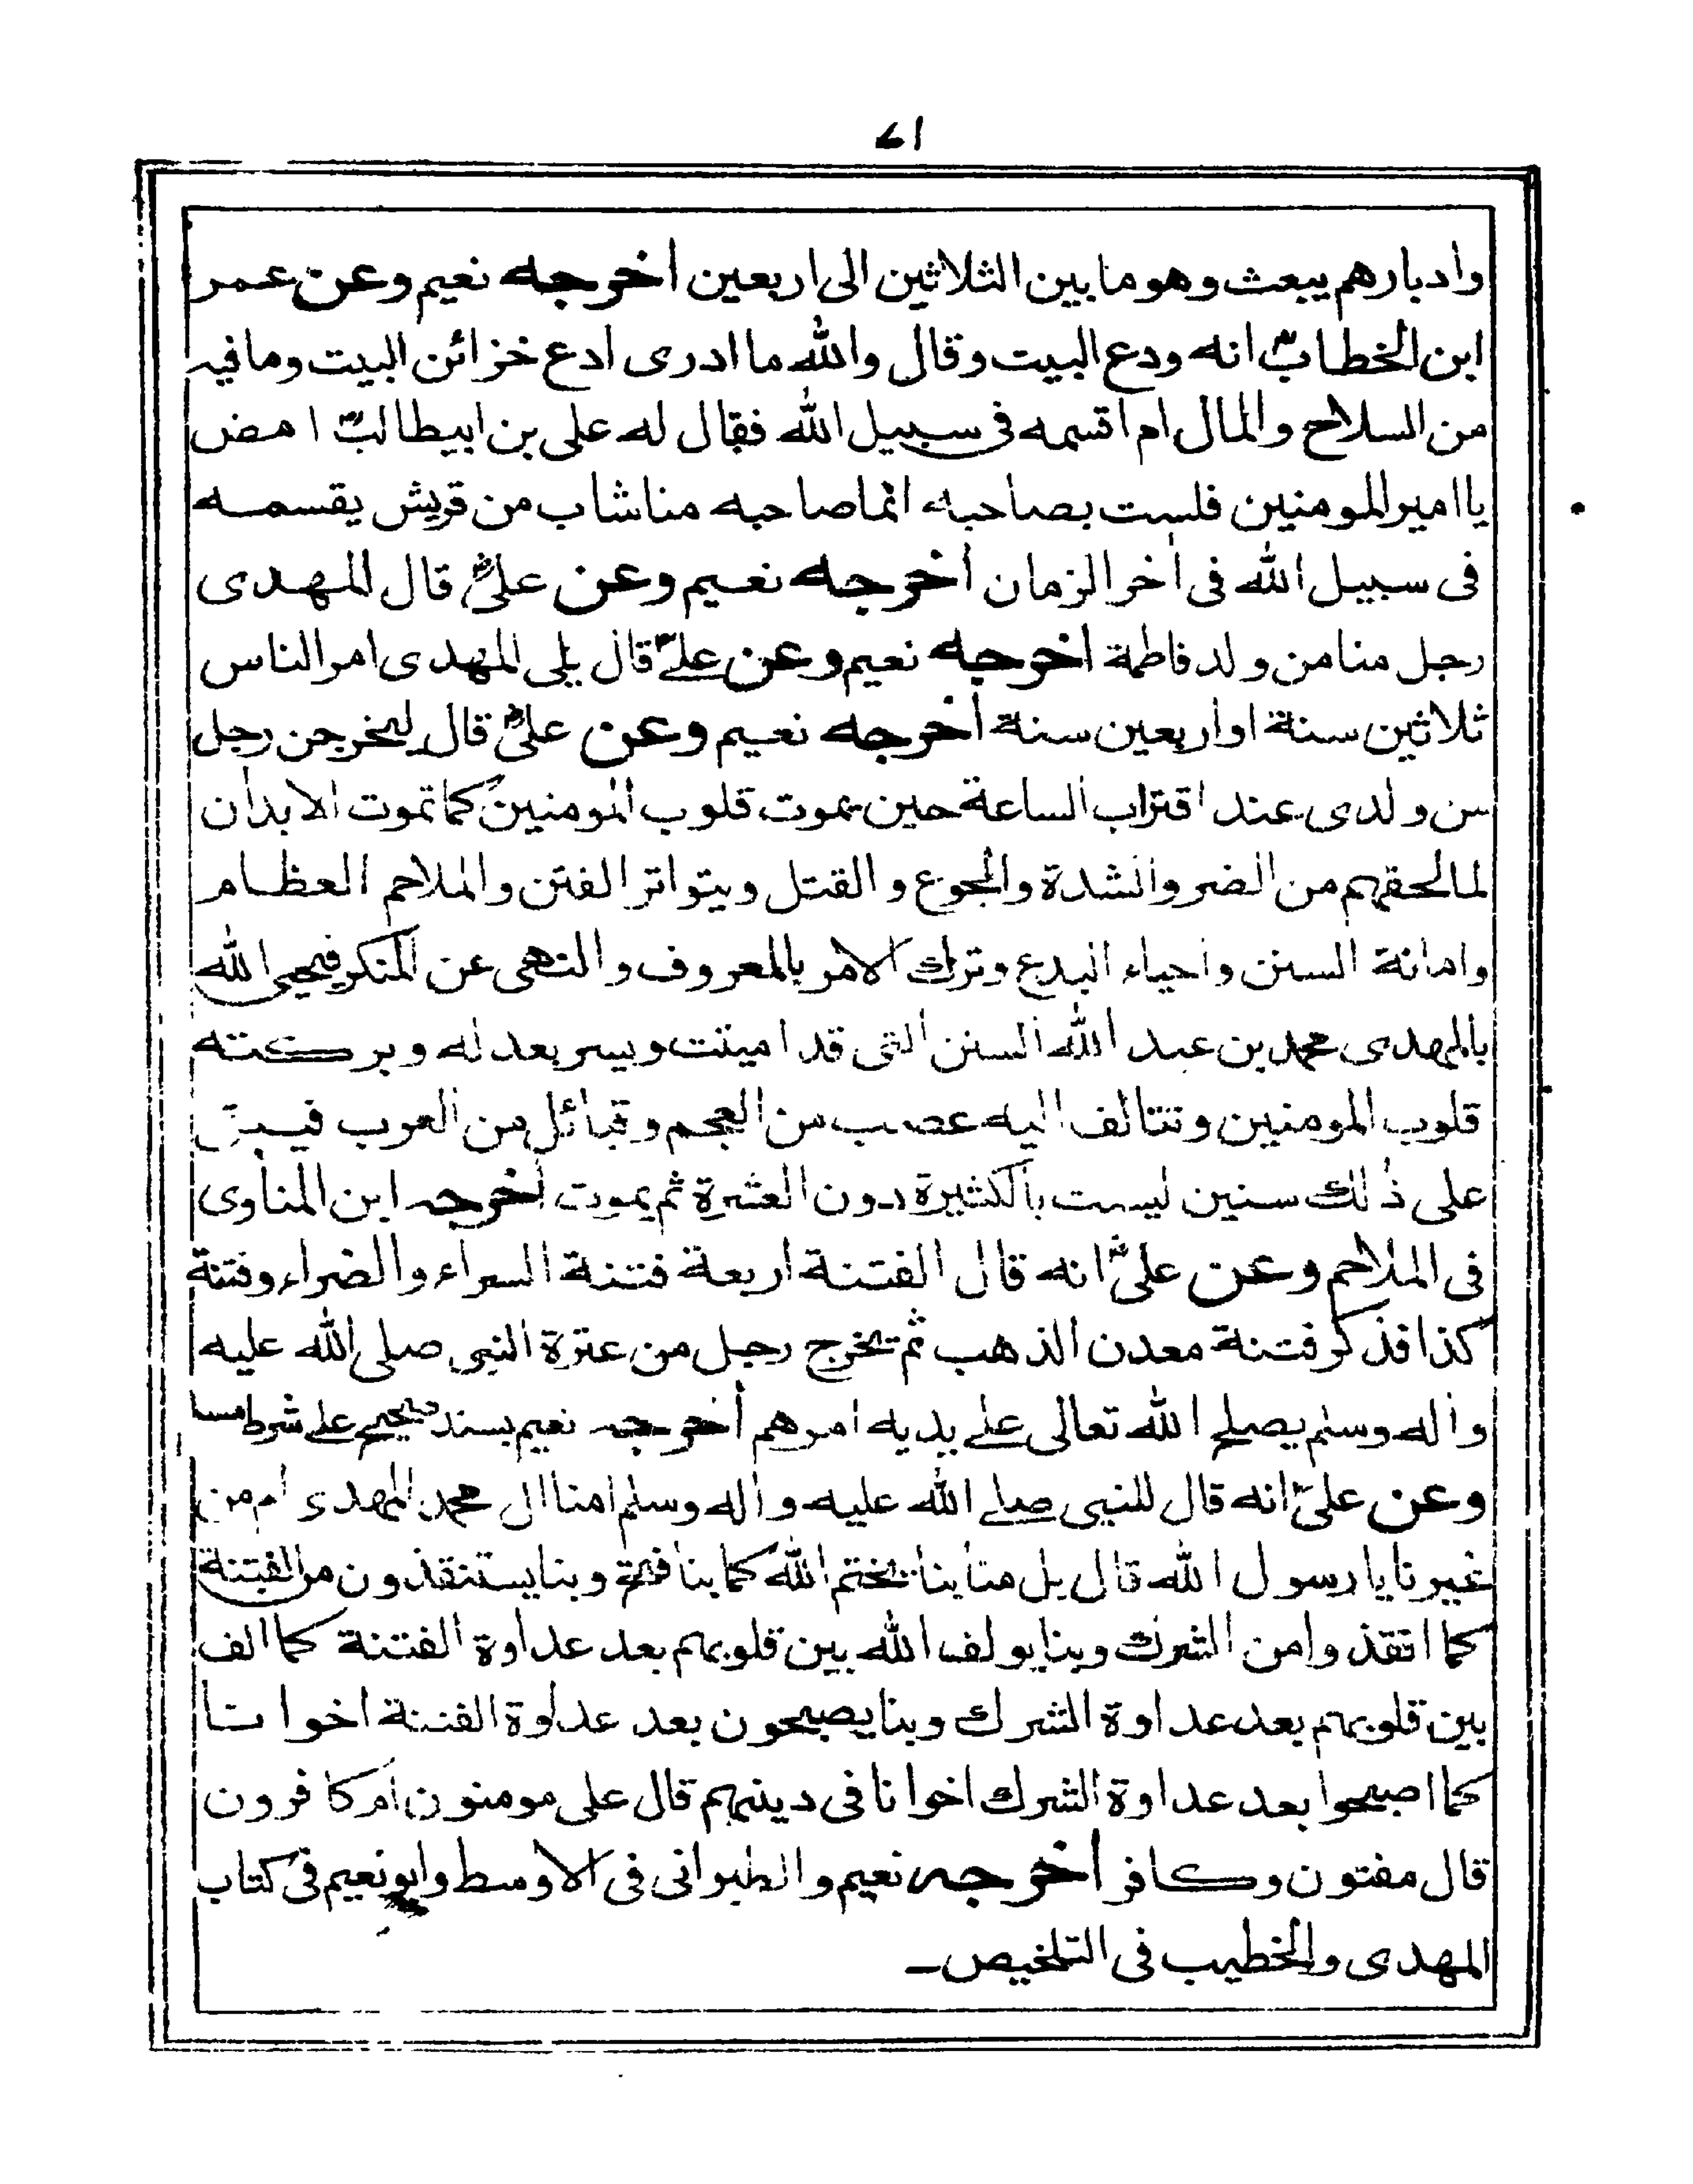 ٤١
وادبارهم يبعث وهو ما بين الثلاثين الى اربعين اخرجه نعيم وعن عمر
ابن الخطابؓ انه ودع البيت وقال والله ما ادرى ادع خزائن البيت وما فيه
من السلاح والمال ام اقسمه فى سبيل الله فقال له على بن ابيطالبؓ امض
يا امير المومنين فلست بصاحبه انما صاحبه منا شاب من قريش يقسمه
فى سبيل الله فى اخر الزمان اخرجه نعيم وعن علىؓ قال المهدى
رجل منا من ولد فاطمة اخرجه نعيم وعن علىؓ قال يلى المهدى امر الناس
ثلاثين سنة او اربعين سنة اخرجه نعيم وعن علىؓ قال ليخرجن رجل
من ولدى عند اقتراب الساعة حين يموت قلوب المومنين كما تموت الابدان
لما لحقهم من الضر والشدة والجوع والقتل ويتواتر الفتن والملاحم العظام
واماتة السنن واحياء البدع وترك الامر بالمعروف والنهى عن المنكر فيحيى الله
بالمهدى محمد بن عبد الله السنن التى قد اميتت ويسر بعدله وبركته
قلوب المومنين وتتالف اليه عصب من العجم وقبائل من العرب فيبقى
على ذلك سنين ليست بالكثيرة دون العشرة ثم يموت اخرجه ابن المناوى
فى الملاحم وعن علىؓ انه قال الفتنة اربعة فتنة السراء والضراء وفتنة
كذا فذكر فتنة معدن الذهب ثم تخرج رجل من عترة النبى صلى الله عليه
واله وسلم يصلح الله تعالى على يديه امرهم اخرجه نعيم بسند صحيح على شرط مسلم
وعن علىؓ انه قال للنبى صلى الله عليه واله وسلم امنا ال محمد المهدى ام من
غيرنا يا رسول الله قال بل منا بنا يختم الله كما بنا فتح وبنا يستنقذون من الفتنة
كما انقذوا من الشرك وبنا يولف الله بين قلوبهم بعد عداوة الفتنة كما الف
بين قلوبهم بعد عداوة الشرك وبنا يصبحون بعد عداوة الفتنة اخوانا
كما اصبحوا بعد عداوة الشرك اخوانا فى دينهم قال على مومنون ام كافرون
قال مفتون وكافر اخرجه نعيم والطبرانى فى الاوسط وابو نعيم فى كتاب
المهدى والخطيب فى التلخيص ـ